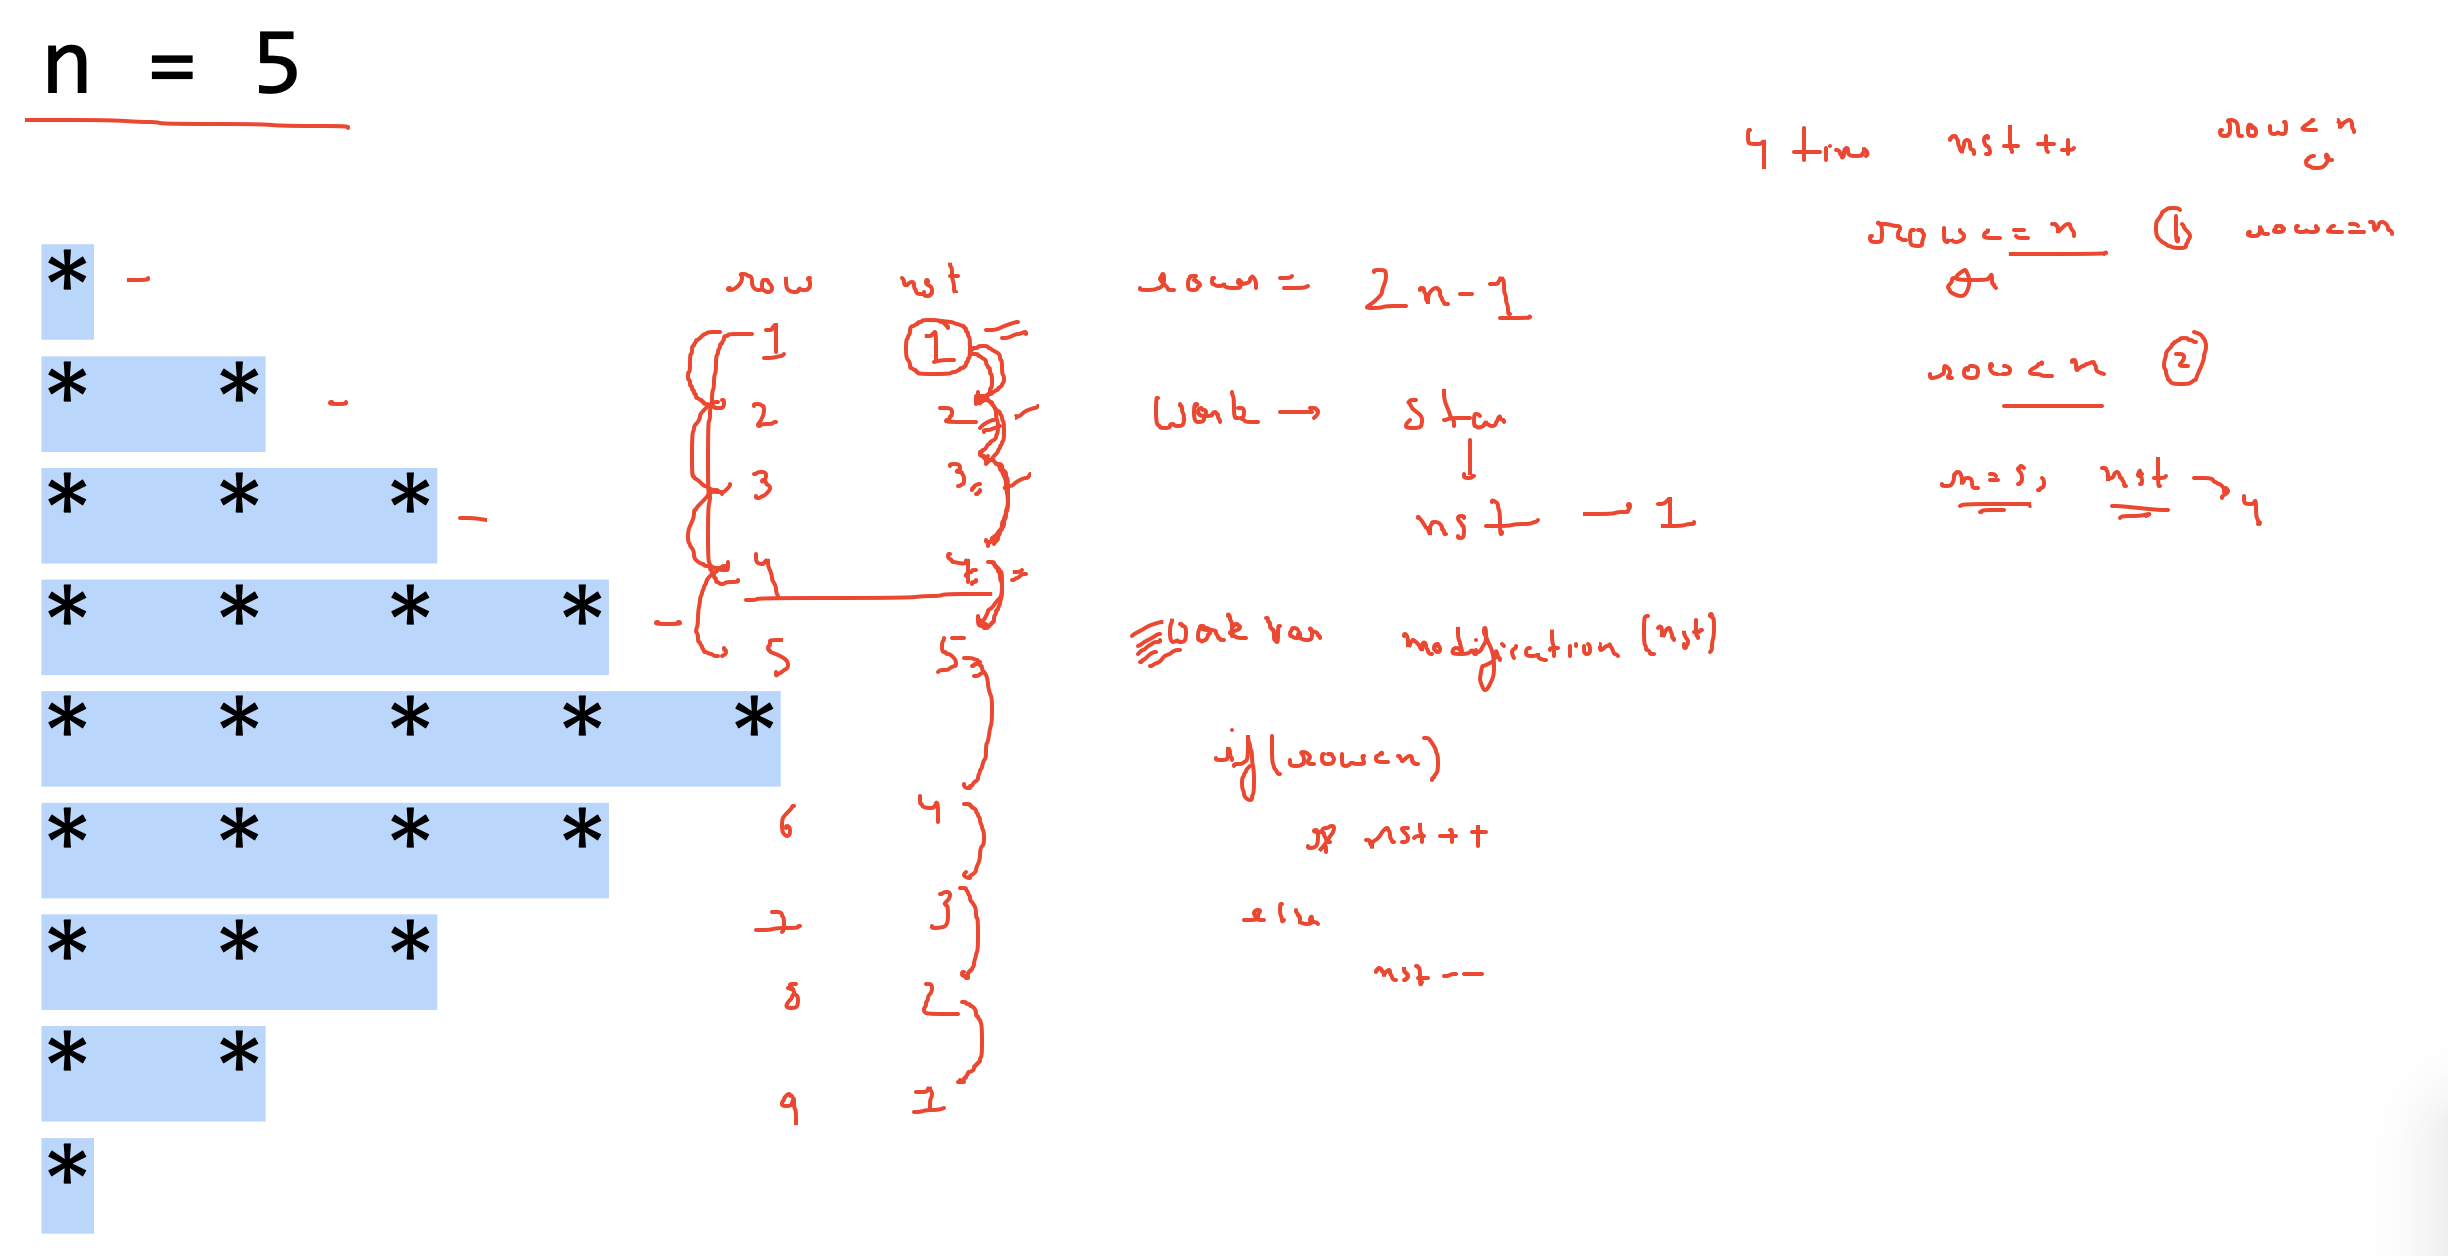 n = 5
*
* *
* * *
* * * *
* * * * *
* * * *
* * *
* *
*
row nst
1 1
2 2
3 3
4 4
5 5
6 4
7 3
8 2
9 1
rows = 2n-1
work → star
nst — 1
work var modification (nst)
if(row<n)
nst++
else
nst--
4 nst++ row<n
row<=n ① row<=n
row<n ②
n=5, nst → 4